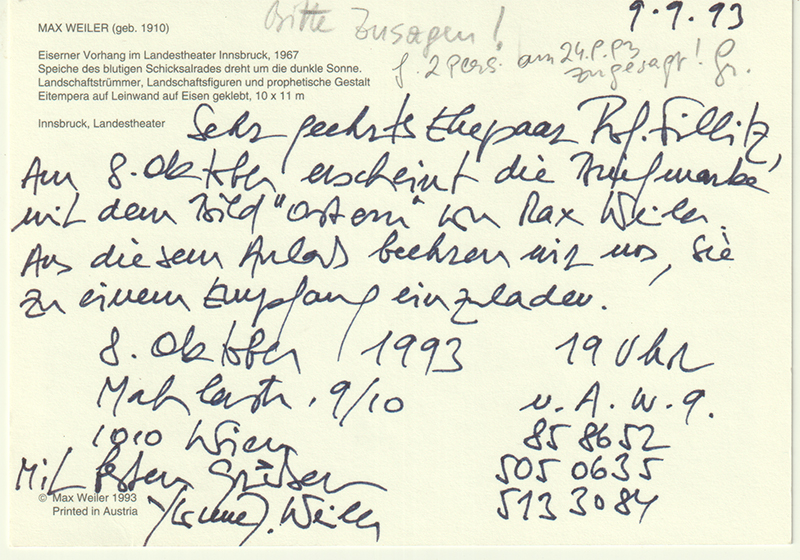 MAX WEILER (geb. 1910)
Bitte zusagen!
9.9.93
Eiserner Vorhang im Landestheater Innsbruck, 1967
Speiche des blutigen Schicksalrades dreht um die dunkle Sonne.
Landschaftstrümmer, Landschaftsfiguren und prophetische Gestalt
Eitempera auf Leinwand auf Eisen geklebt, 10 x 11 m
f. 2 Pers. am 24.9.93
zugesagt! Gr.
Innsbruck, Landestheater
Sehr geehrtes Ehepaar Prof. Fillitz,
Am 8. Oktober erscheint die Briefmarke
mit dem Bild "Ostern" von Max Weiler.
Aus diesem Anlaß beehren wir uns, Sie
zu einem Empfang einzuladen.
8. Oktober 1993 19 Uhr
9/10 u. A. w. g.
1010 Wien 85 86 52
505 0635
Mit besten Grüßen 513 3084
Weiler
© Max Weiler 1993
Printed in Austria